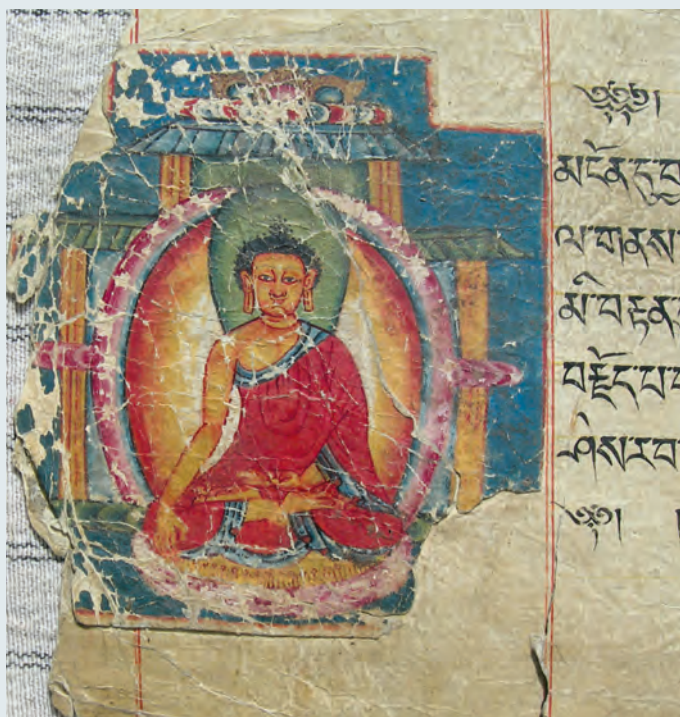 ༄༅༅།
མངོན་དུ་བྱ
ལ་གནས་
མི་བརྟན་
བརྗོད་པ་
ཤེས་རབ་
༄༅། །